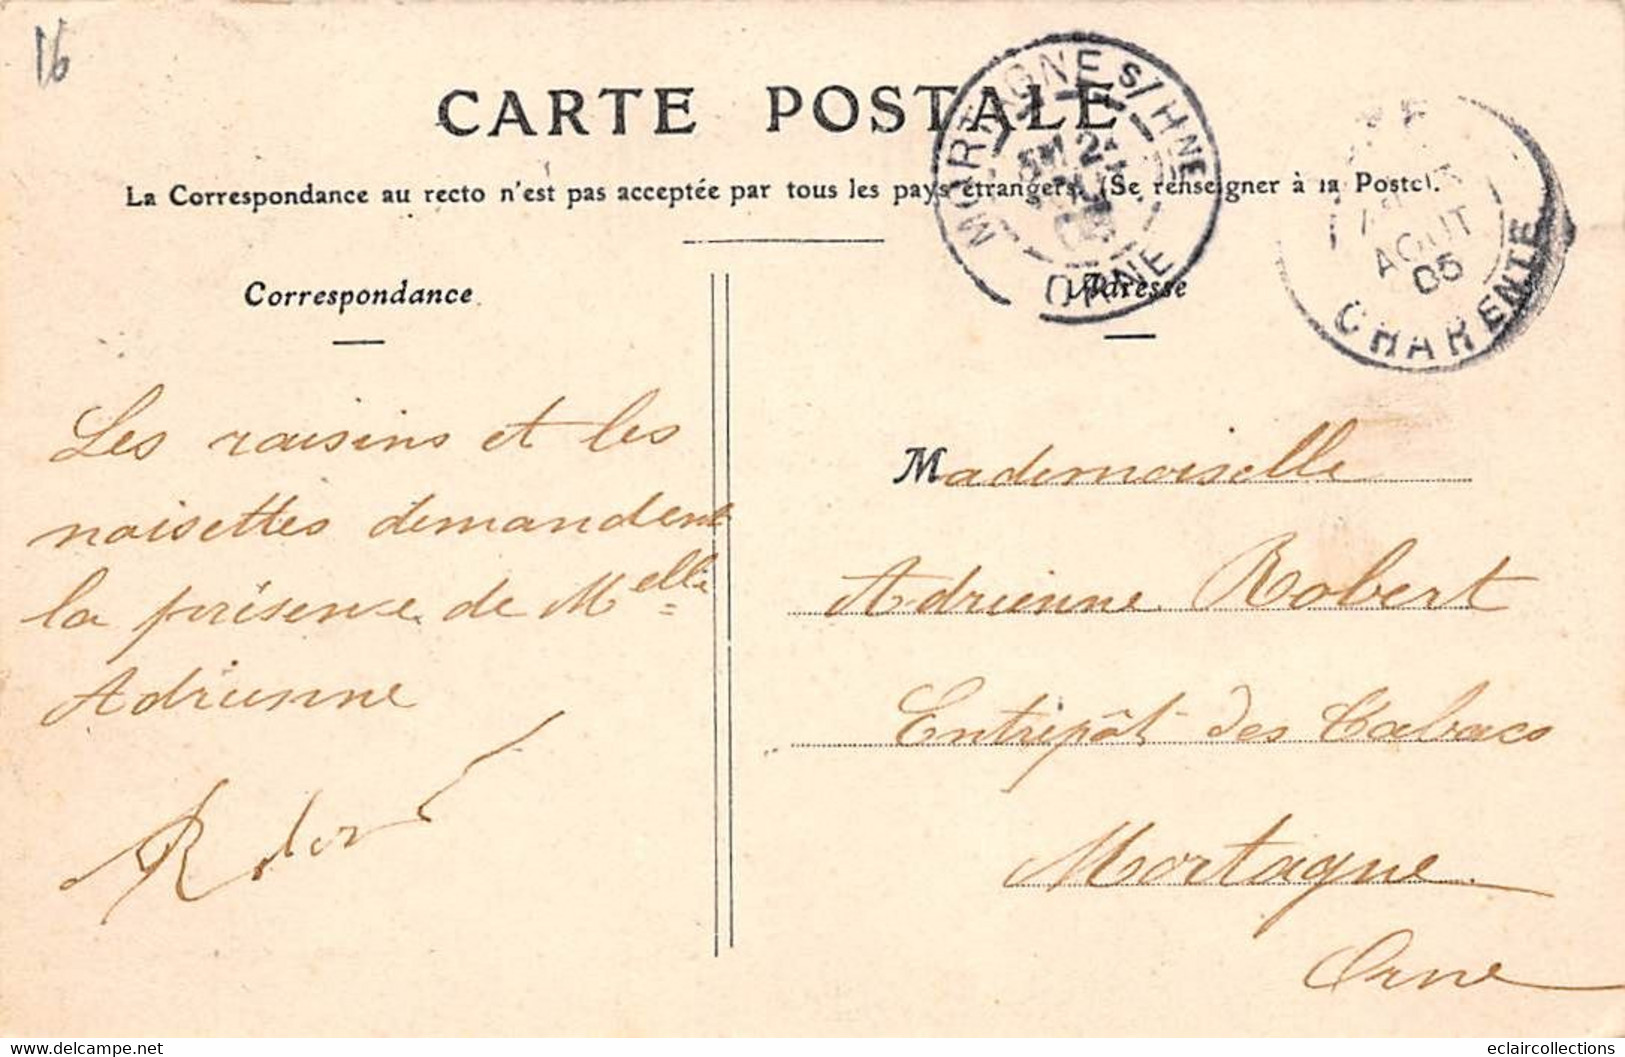 16
CARTE POSTALE
La Correspondance au recto n'est pas acceptée par tous les pays étrangers. (Se renseigner à la Poste).
MORTAGNE S/ HNE
ORNE
AOUT
05
CHARENTE
Correspondance
Les raisins et les
noisettes demandent
la présence de Melle
Adrienne
Adresse
Mademoiselle
Adrienne Robert
Entrepôt des Tabacs
Mortagne
Orne
www.delcampe.net
eclaircollections